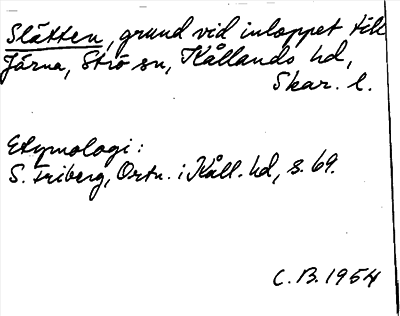 Slätten, grund vid inloppet till
Järna, Strö sn, Kållands hd,
Skar. l.
Etymologi:
S. Friberg, Ortn. i Kåll. hd, s. 69.
C.B. 1954